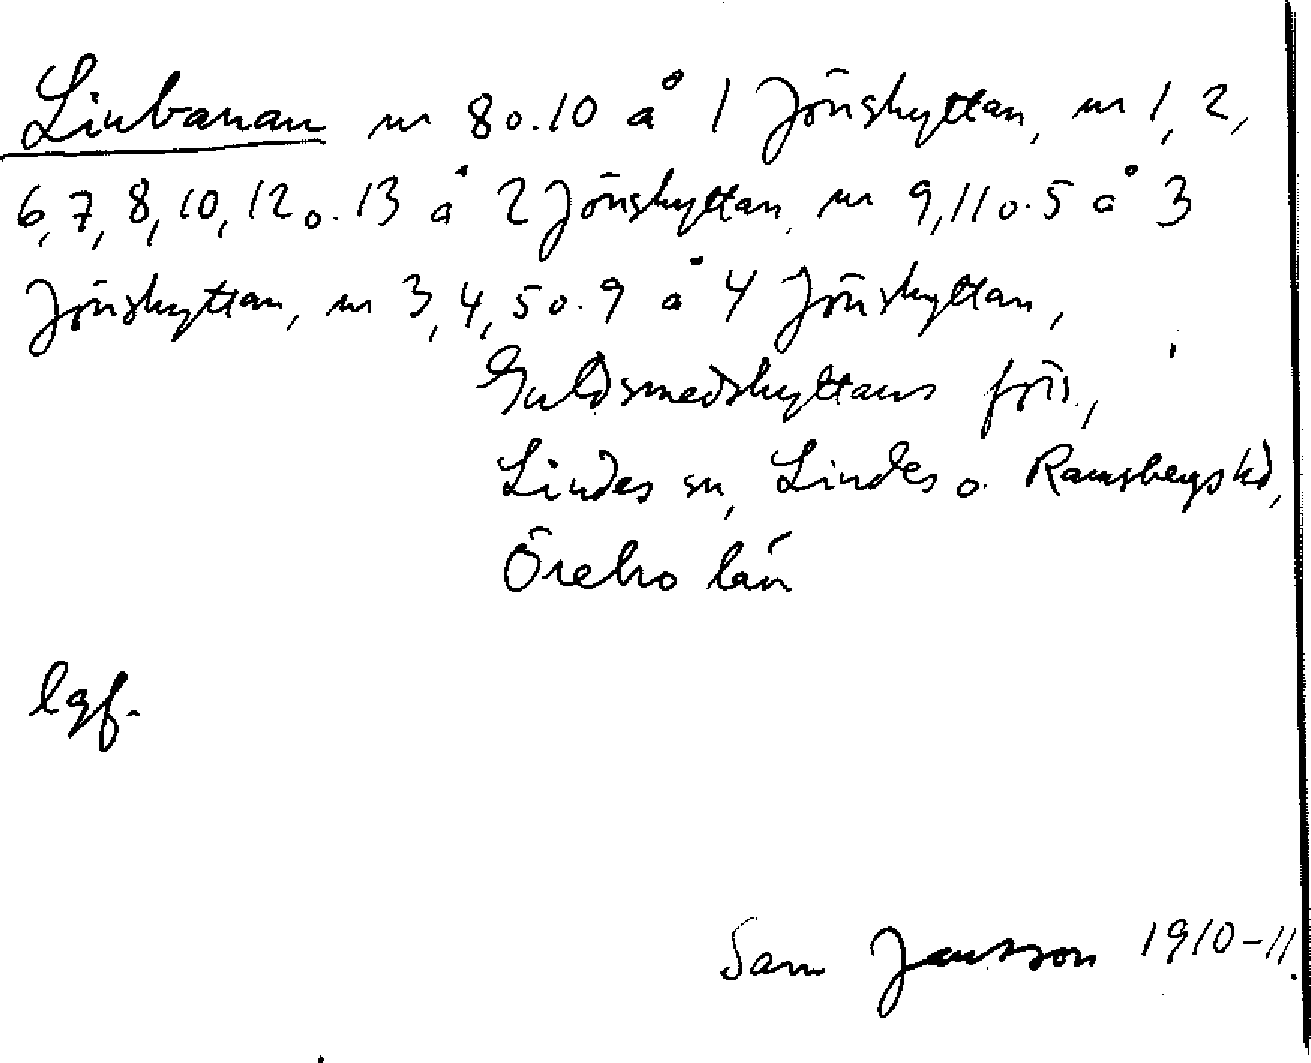 Linbanan nr 8 o. 10 å 1 Jönshyttan, nr 1, 2,
6, 7, 8, 10, 12 o. 13 å 2 Jönshyttan, nr 9, 11 o. 5 å 3
Jönshyttan, nr 3, 4, 5 o. 9 å 4 Jönshyttan,
Guldsmedshyttans förs.,
Lindes sn, Lindes o. Ramsbergs hd,
Örebro län
lgf.
Sam Jansson 1910-11.